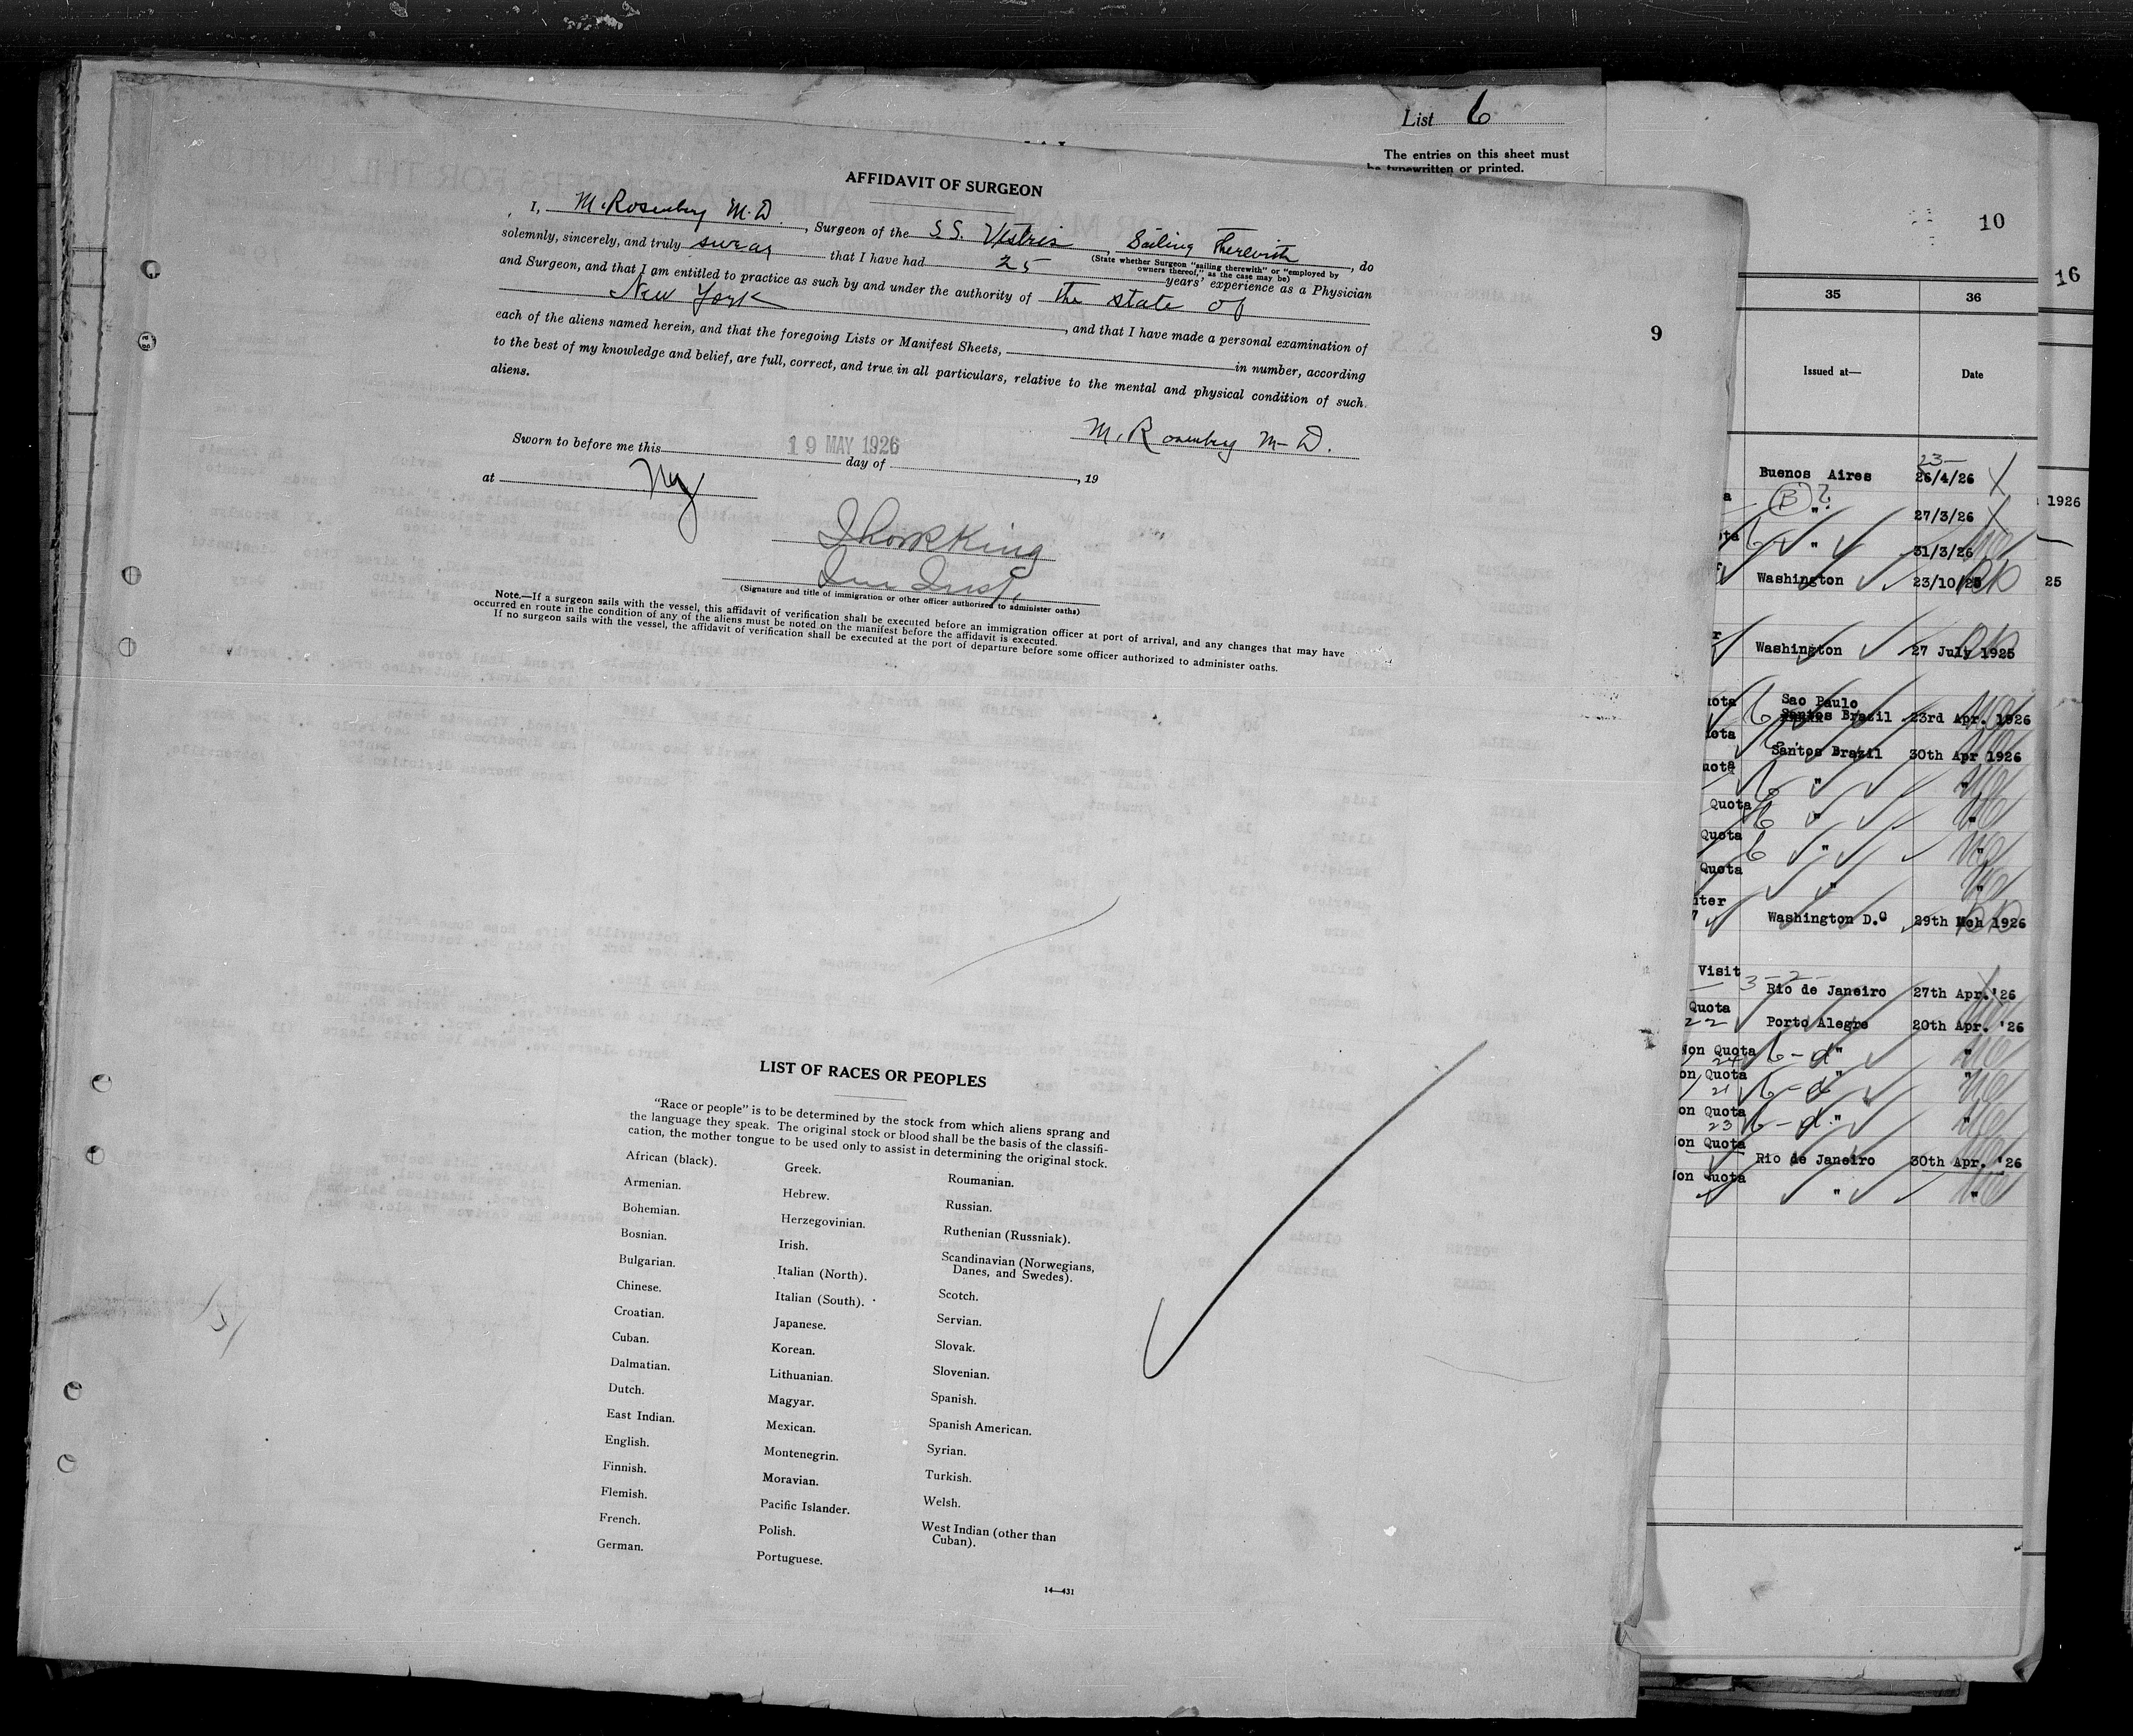 List 6
The entries on this sheet must
be typewritten or printed.
AFFIDAVIT OF SURGEON
I, M. Rosenberg M.D., Surgeon of the S.S. Vestris, Sailing Therewith, do
(State whether Surgeon "sailing therewith" or "employed by
owners thereof," as the case may be)
solemnly, sincerely, and truly swear that I have had 25 years' experience as a Physician
and Surgeon, and that I am entitled to practice as such by and under the authority of the state of
New York, and that I have made a personal examination of
each of the aliens named herein, and that the foregoing Lists or Manifest Sheets, in number, according
to the best of my knowledge and belief, are full, correct, and true in all particulars, relative to the mental and physical condition of such
aliens.
M. Rosenberg M-D.
Sworn to before me this 19 MAY 1926 day of , 19
at NY
King
(Signature and title of immigration or other officer authorized to administer oaths)
Note.—If a surgeon sails with the vessel, this affidavit of verification shall be executed before an immigration officer at port of arrival, and any changes that may have
occurred en route in the condition of any of the aliens must be noted on the manifest before the affidavit is executed.
If no surgeon sails with the vessel, the affidavit of verification shall be executed at the port of departure before some officer authorized to administer oaths.
9
LIST OF RACES OR PEOPLES
"Race or people" is to be determined by the stock from which aliens sprang and
the language they speak. The original stock or blood shall be the basis of the classifi-
cation, the mother tongue to be used only to assist in determining the original stock.
African (black).
Armenian.
Bohemian.
Bosnian.
Bulgarian.
Chinese.
Croatian.
Cuban.
Dalmatian.
Dutch.
East Indian.
English.
Finnish.
Flemish.
French.
German.
Greek.
Hebrew.
Herzegovinian.
Irish.
Italian (North).
Italian (South).
Japanese.
Korean.
Lithuanian.
Magyar.
Mexican.
Montenegrin.
Moravian.
Pacific Islander.
Polish.
Portuguese.
Roumanian.
Russian.
Ruthenian (Russniak).
Scandinavian (Norwegians,
Danes, and Swedes).
Scotch.
Servian.
Slovak.
Slovenian.
Spanish.
Spanish American.
Syrian.
Turkish.
Welsh.
West Indian (other than
Cuban).
14—431
10
35 36
Issued at— Date
23-
Buenos Aires 26/4/26
B ?
" 27/3/26
" 31/3/26
Washington 23/10/25
Washington 27 July 1925
Sao Paulo
Santos Brazil 23rd Apr. 1926
Santos Brazil 30th Apr 1926
" "
Quota " "
Quota " "
Quota " "
Washington D.C 29th Mch 1926
Visit 3-2-
Rio de Janeiro 27th Apr.'26
Quota
22 Porto Alegre 20th Apr. '26
Non Quota b-d " "
24
on Quota b-d " "
21
on Quota b-d " "
23
on Quota
Rio de Janeiro 30th Apr. '26
on Quota
" "
16
1926
25